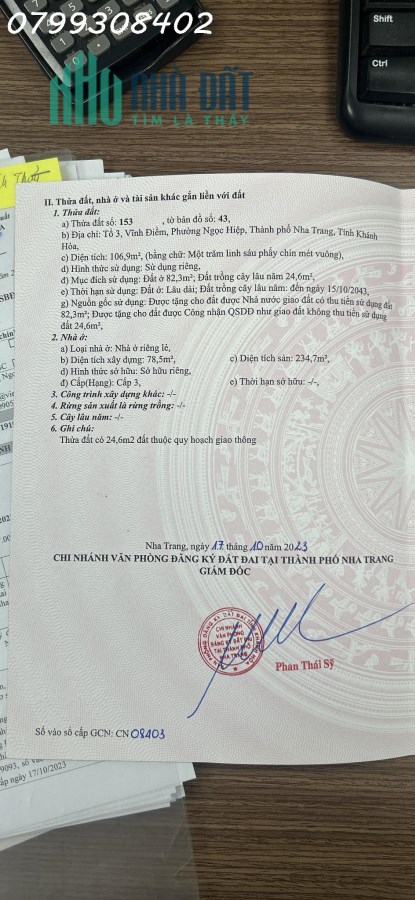 0799308402
KHO NHÀ ĐẤT
TÌM LÀ THẤY
Shift
Ctrl
II. Thửa đất, nhà ở và tài sản khác gắn liền với đất
1. Thửa đất:
a) Thửa đất số: 153 , tờ bản đồ số: 43,
b) Địa chỉ: Tổ 3, Vĩnh Điềm, Phường Ngọc Hiệp, Thành phố Nha Trang, Tỉnh Khánh
Hòa,
c) Diện tích: 106,9m², (bằng chữ: Một trăm linh sáu phẩy chín mét vuông),
d) Hình thức sử dụng: Sử dụng riêng,
đ) Mục đích sử dụng: Đất ở 82,3m²; Đất trồng cây lâu năm 24,6m²,
e) Thời hạn sử dụng: Đất ở: Lâu dài; Đất trồng cây lâu năm: đến ngày 15/10/2043,
g) Nguồn gốc sử dụng: Được tặng cho đất được Nhà nước giao đất có thu tiền sử dụng đất
82,3m²; Được tặng cho đất được Công nhận QSDĐ như giao đất không thu tiền sử dụng
đất 24,6m²,
2. Nhà ở:
a) Loại nhà ở: Nhà ở riêng lẻ,
b) Diện tích xây dựng: 78,5m², c) Diện tích sàn: 234,7m²,
d) Hình thức sở hữu: Sở hữu riêng,
đ) Cấp(Hạng): Cấp 3, e) Thời hạn sở hữu: -/-,
3. Công trình xây dựng khác: -/-
4. Rừng sản xuất là rừng trồng: -/-
5. Cây lâu năm: -/-
6. Ghi chú:
Thửa đất có 24,6m2 đất thuộc quy hoạch giao thông
Nha Trang, ngày 17 tháng 10 năm 2023
CHI NHÁNH VĂN PHÒNG ĐĂNG KÝ ĐẤT ĐAI TẠI THÀNH PHỐ NHA TRANG
GIÁM ĐỐC
CHI NHÁNH
VĂN PHÒNG
ĐĂNG KÝ ĐẤT ĐAI
TẠI THÀNH PHỐ
NHA TRANG
Phan Thái Sỹ
Số vào sổ cấp GCN: CN 08403
9093, số
cấp ngày 17/10/2023